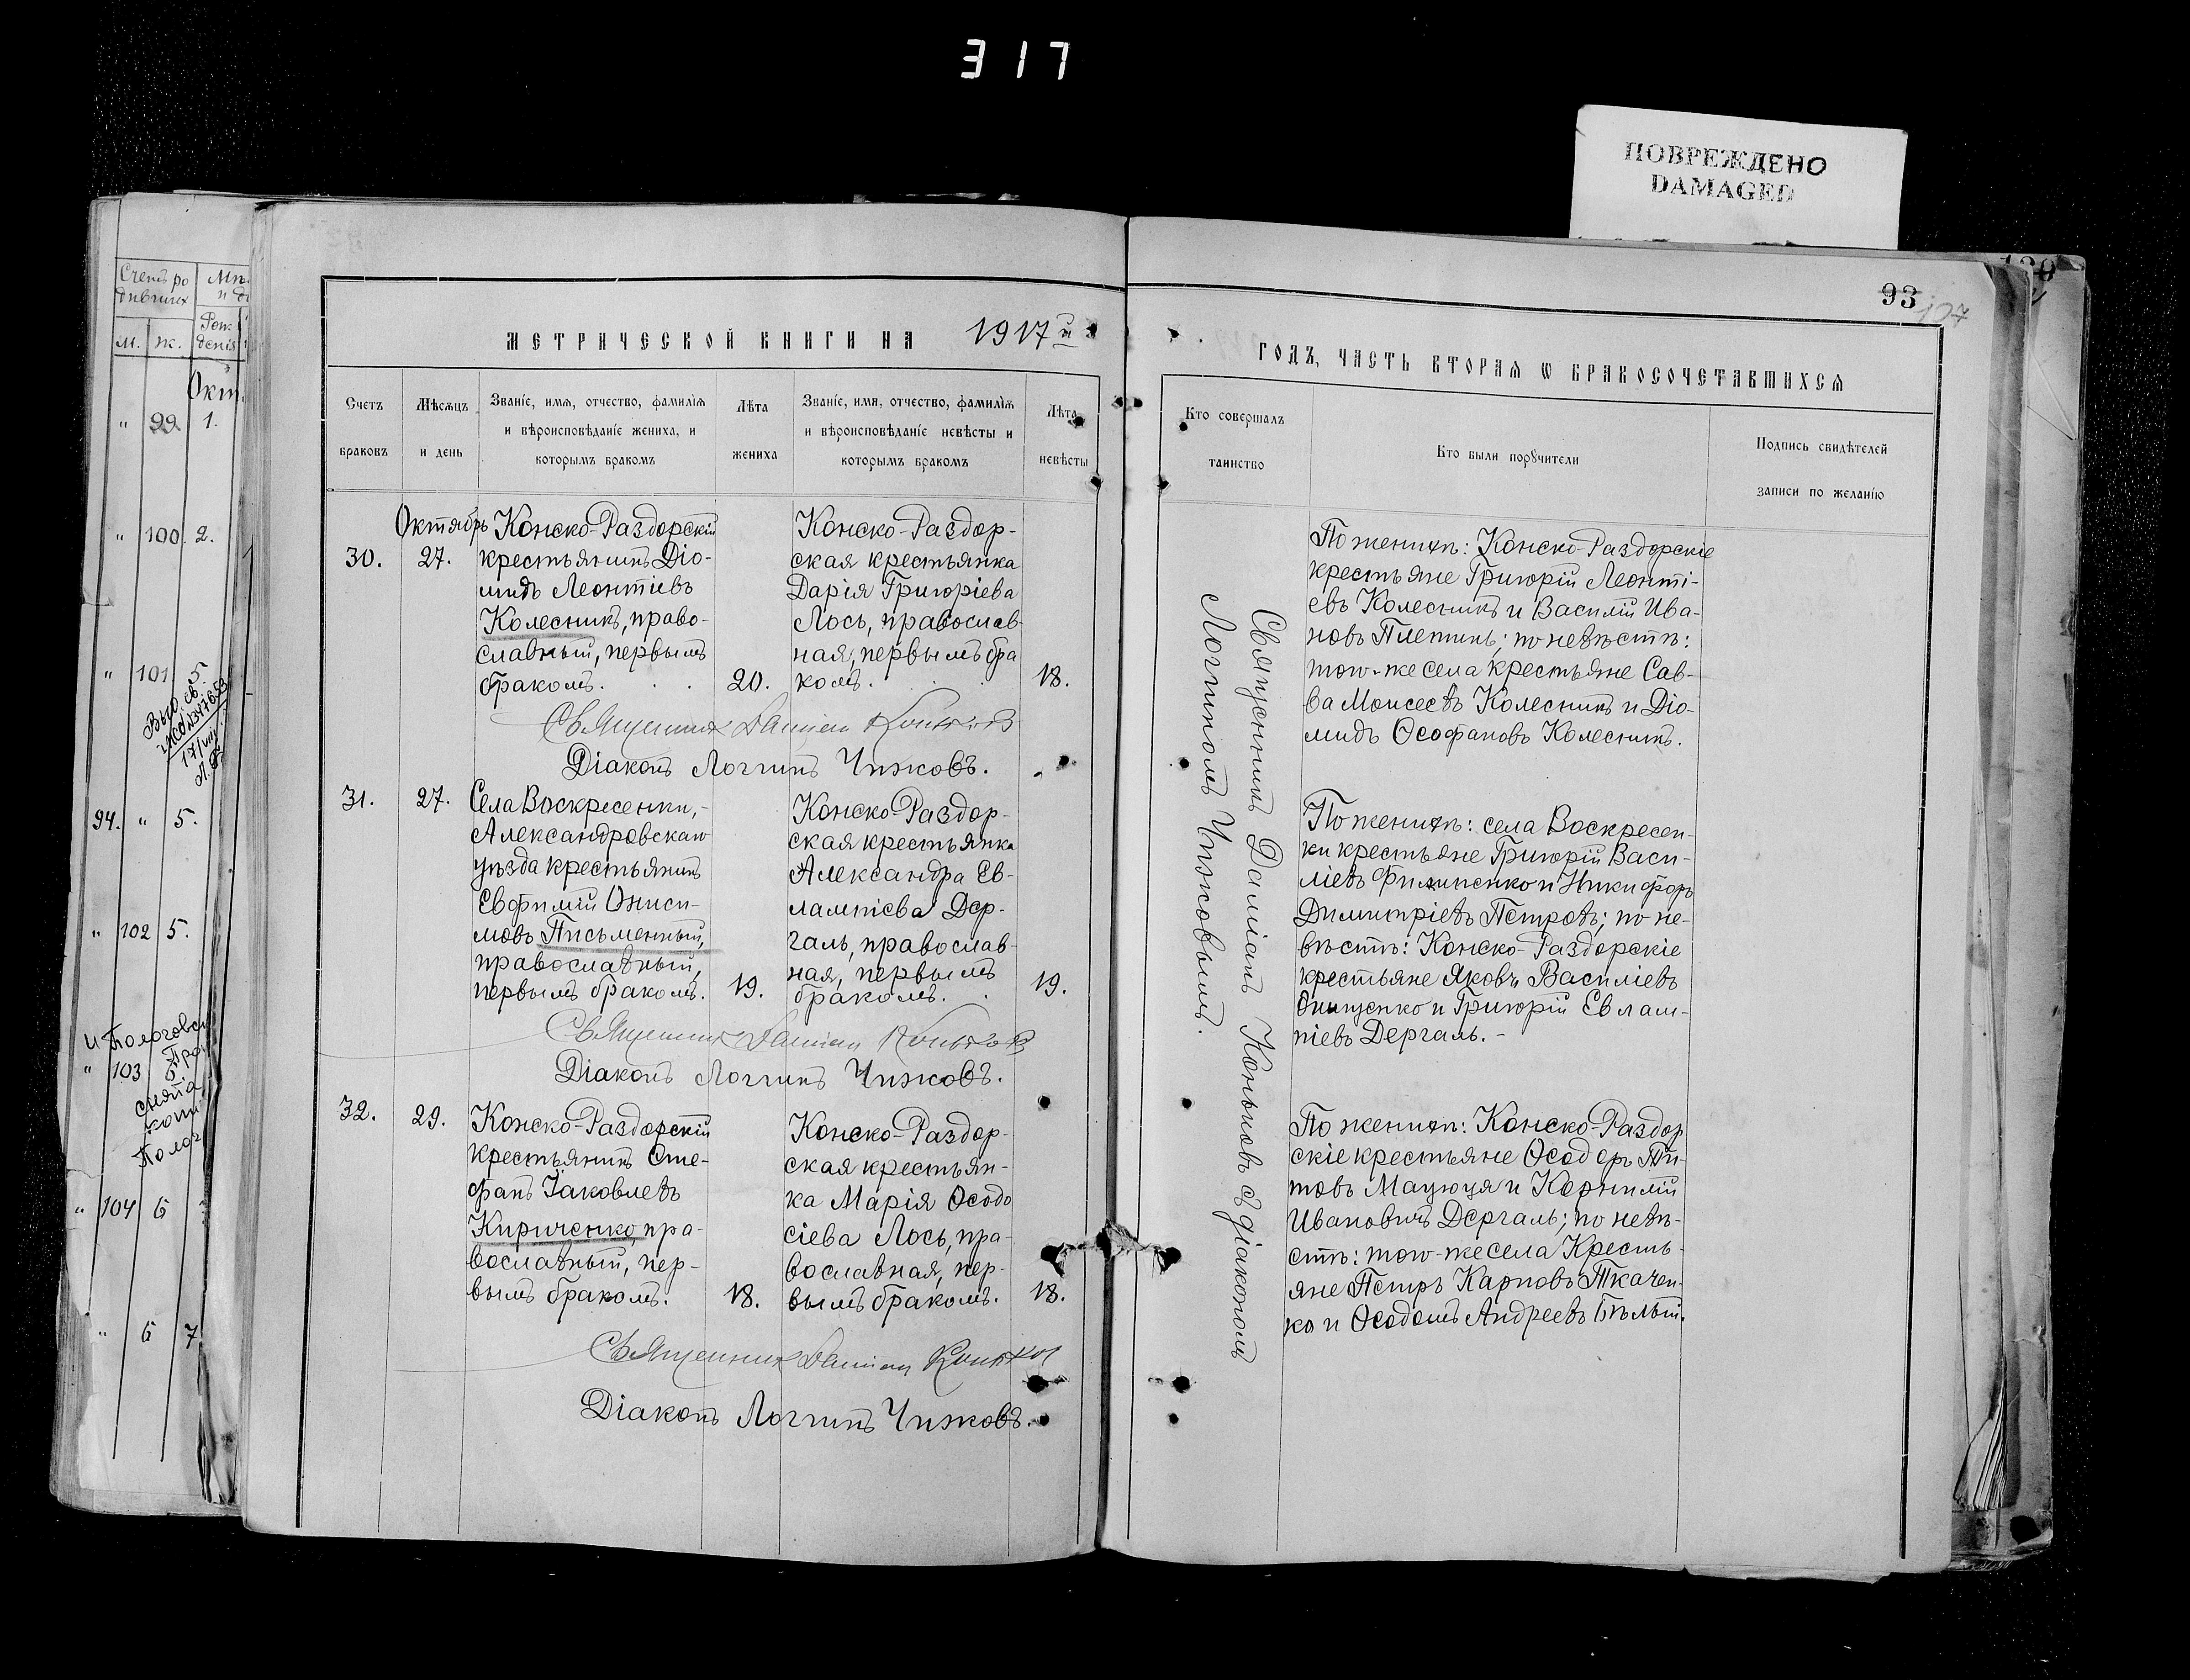 317
ПОВРЕЖДЕНО
DAMAGED
93
107
Счетъ ро
дившихъ
м.
ж.
Окт.
" 99. 1.
" 100. 2.
" 101 5.
94. " 5.
" 102 5.
" 103 5.
" 104 6
" 6 7
МЕТРИЧЕСКОЙ КНИГИ НА 1917й
Счетъ
браковъ
Мѣсяцъ
и день
Званіе, имя, отчество, фамилія
и вѣроисповѣданіе жениха, и
которымъ бракомъ
Лѣта
жениха
Званіе, имя, отчество, фамилія
и вѣроисповѣданіе невѣсты и
которымъ бракомъ
Лѣта
невѣсты
30.
Октябрь
27.
Конско-Раздорскій
крестьянинъ Діо-
мидъ Леонтіевъ
Колесникъ, право-
славный, первымъ
бракомъ.
20.
Конско-Раздор-
ская крестьянка
Дарія Григоріева
Лось, православ-
ная, первымъ бра
комъ.
18.
Священникъ Даміан Коньков
Діаконъ Логгинъ Чижовъ.
31.
27.
Села Воскресенки,-
Александровскаго
уѣзда крестьянинъ
Евфимій Ониси-
мовъ Письменный,
православный,
первымъ бракомъ.
19.
Конско-Раздор-
ская крестьянка
Александра Ев-
лампіева Дер-
галь, православ-
ная, первымъ
бракомъ.
19.
Священникъ Даміан Коньков
Діаконъ Логгинъ Чижовъ.
32.
29.
Конско-Раздорскій
крестьянинъ Сте-
фанъ Іаковлевъ
Кириченко, пра-
вославный, пер-
вымъ бракомъ.
18.
Конско-Раздор-
ская крестьян-
ка Марія Ѳеодо
сіева Лось, пра-
вославная, пер-
вымъ бракомъ.
18.
Священникъ Даміан Коньков
Діаконъ Логгинъ Чижовъ.
ГОДЪ, ЧАСТЬ ВТОРАЯ Ѡ БРАКОСОЧЕТАВШИХСЯ
Кто совершалъ
таинство
Кто были порꙋчители
Подпись свидѣтелей
записи по желанію
Священникъ Даміанъ Коньковъ съ діакономъ
Логгиномъ Чижовымъ.
По женихѣ: Конско-Раздорскіе
крестьяне Григорій Леонті-
евъ Колесникъ и Василій Ива-
новъ Плетинь; по невѣстѣ:
того-же села крестьяне Сав-
ва Моисеевъ Колесникъ и Діо-
мидъ Ѳеофановъ Колесникъ.
По женихѣ: села Воскресен-
ки крестьяне Григорій Васи-
ліевъ Филипенко и Никифоръ
Димитріевъ Петровъ; по не-
вѣстѣ: Конско-Раздорскіе
крестьяне Яковъ Василіевъ
Онищенко и Григорій Евлам-
піевъ Дергаль.-
По женихѣ: Конско-Раздор
скіе крестьяне Ѳеодоръ Ти-
товъ Мацюця и Корнилій
Ивановичъ Дергаль; по невѣ-
стѣ: того-же села Кресть-
яне Петръ Карповъ Ткачен-
ко и Ѳеодотъ Андреевъ Бѣлый.